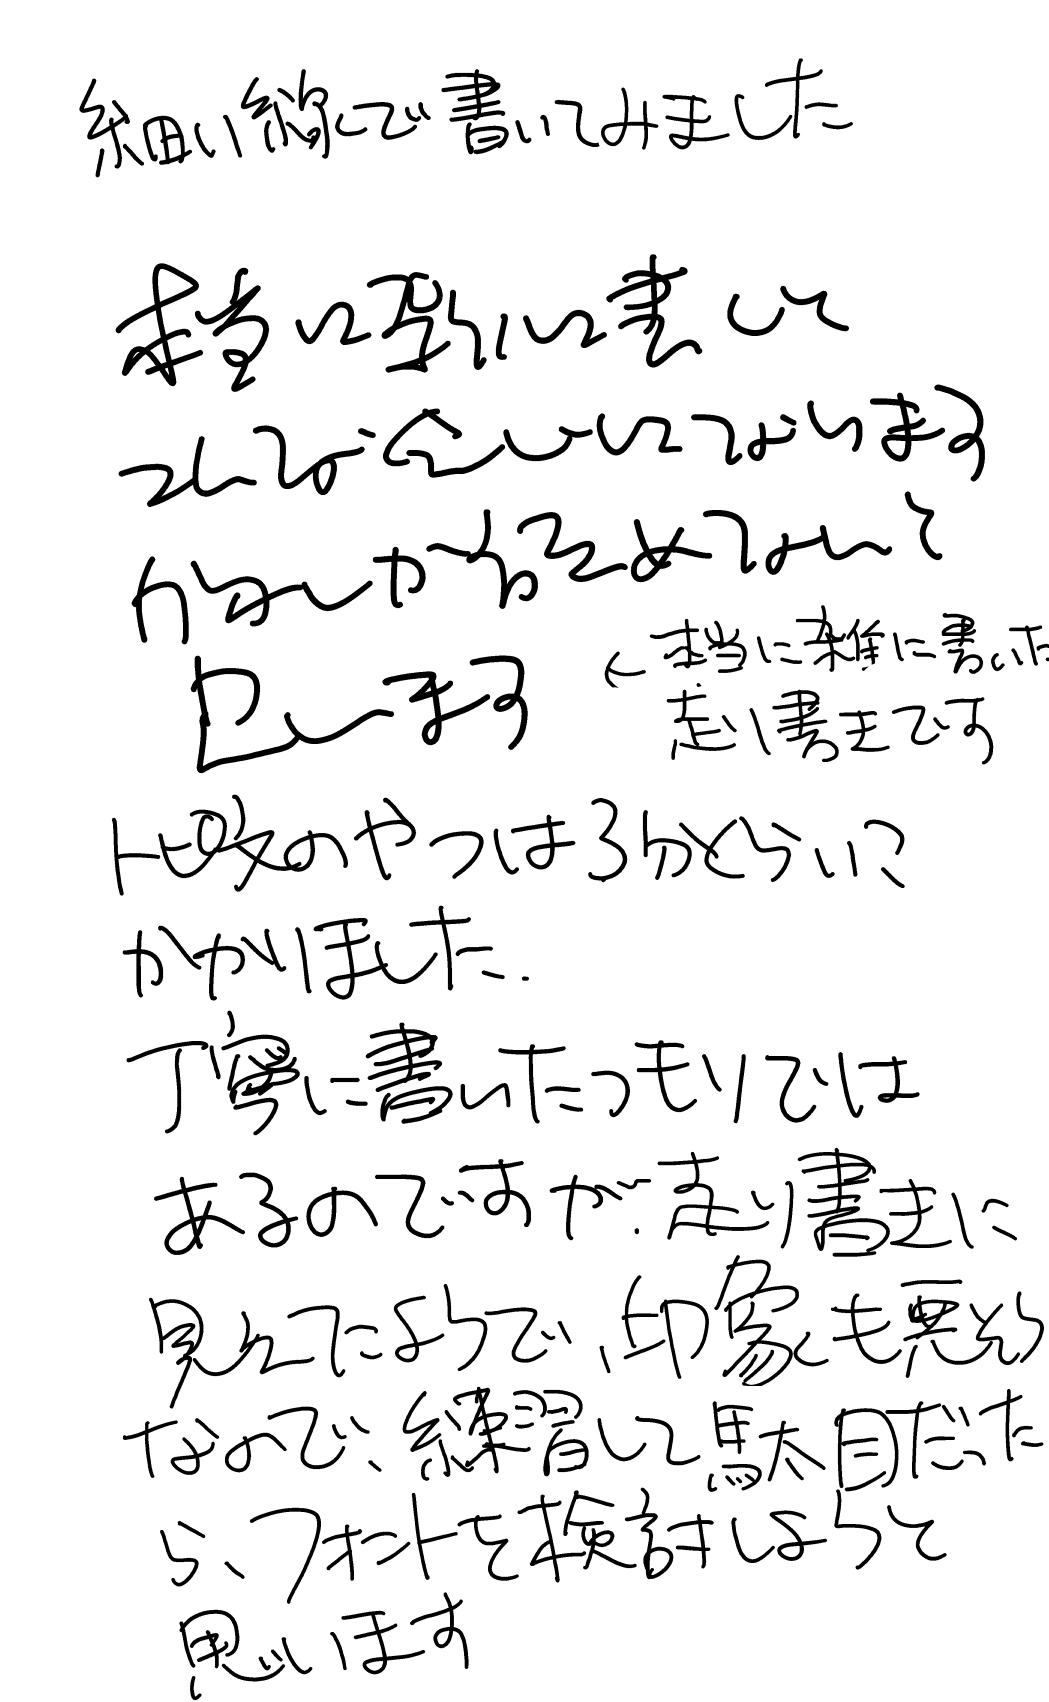 細い線で書いてみました
本当に雑に書いて
こんな会いになります
自分しか読めないと
思います
←本当に雑に書いた
走り書きです
トピ文のやつは3分くらい?
かかりました.
丁寧に書いたつもりでは
あるのですが、走り書きに
見えてたようで、印象も悪そう
なので、練習して駄目だった
ら、フォントを検討しようと
思います